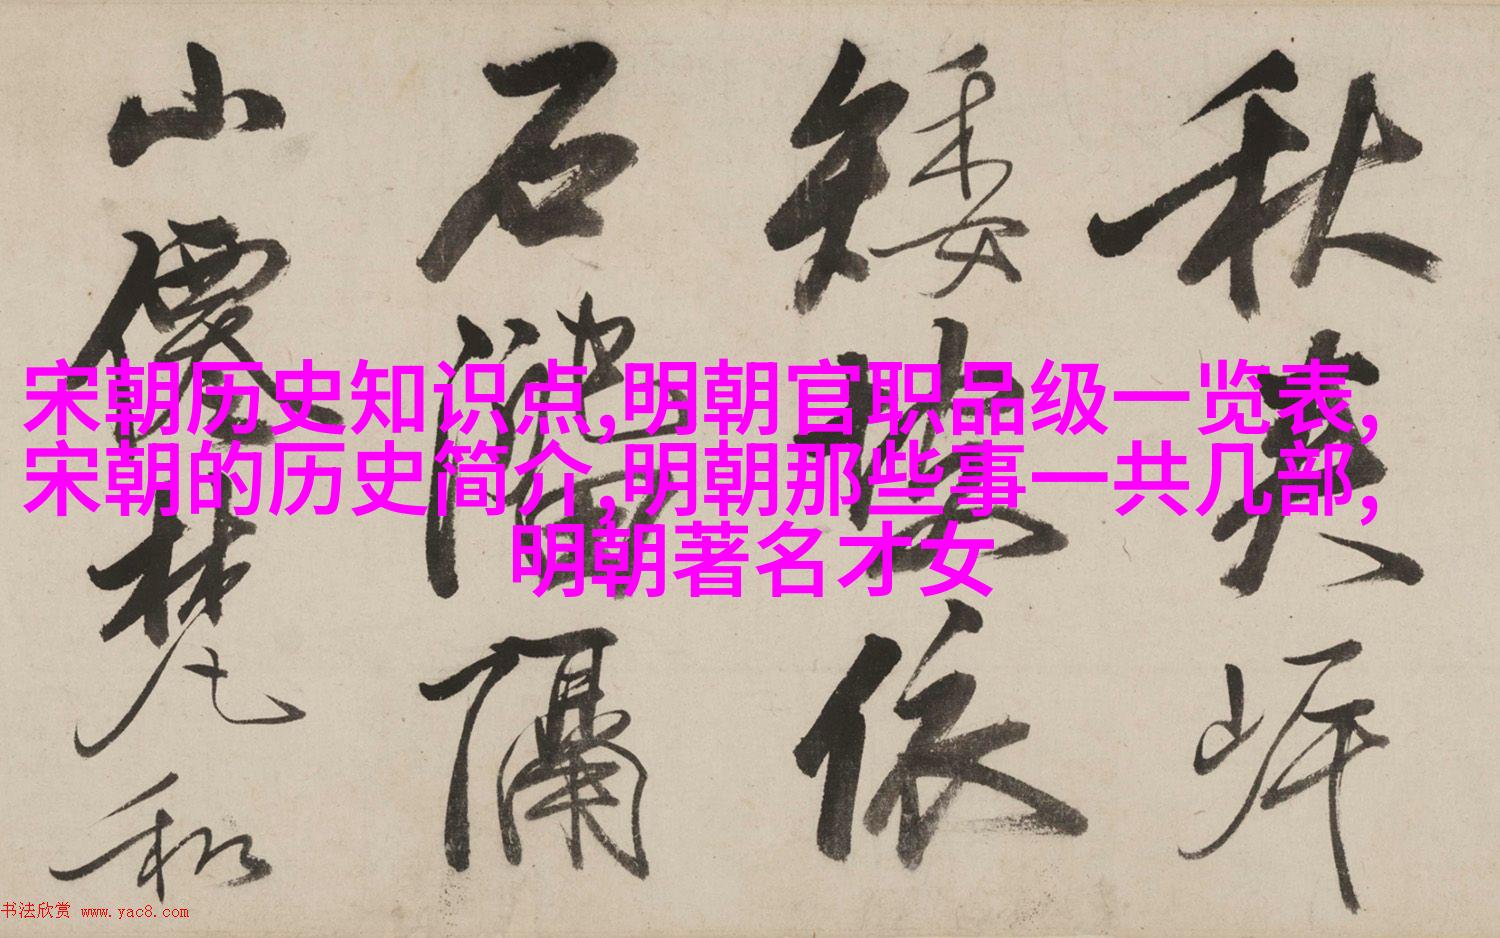 秋爽岸
矮
依
石
隔
山僊梵和
宋朝历史知识点,明朝官职品级一览表,
宋朝的历史简介,明朝那些事一共几部,
明朝著名才女
书法欣赏 www.yac8.com